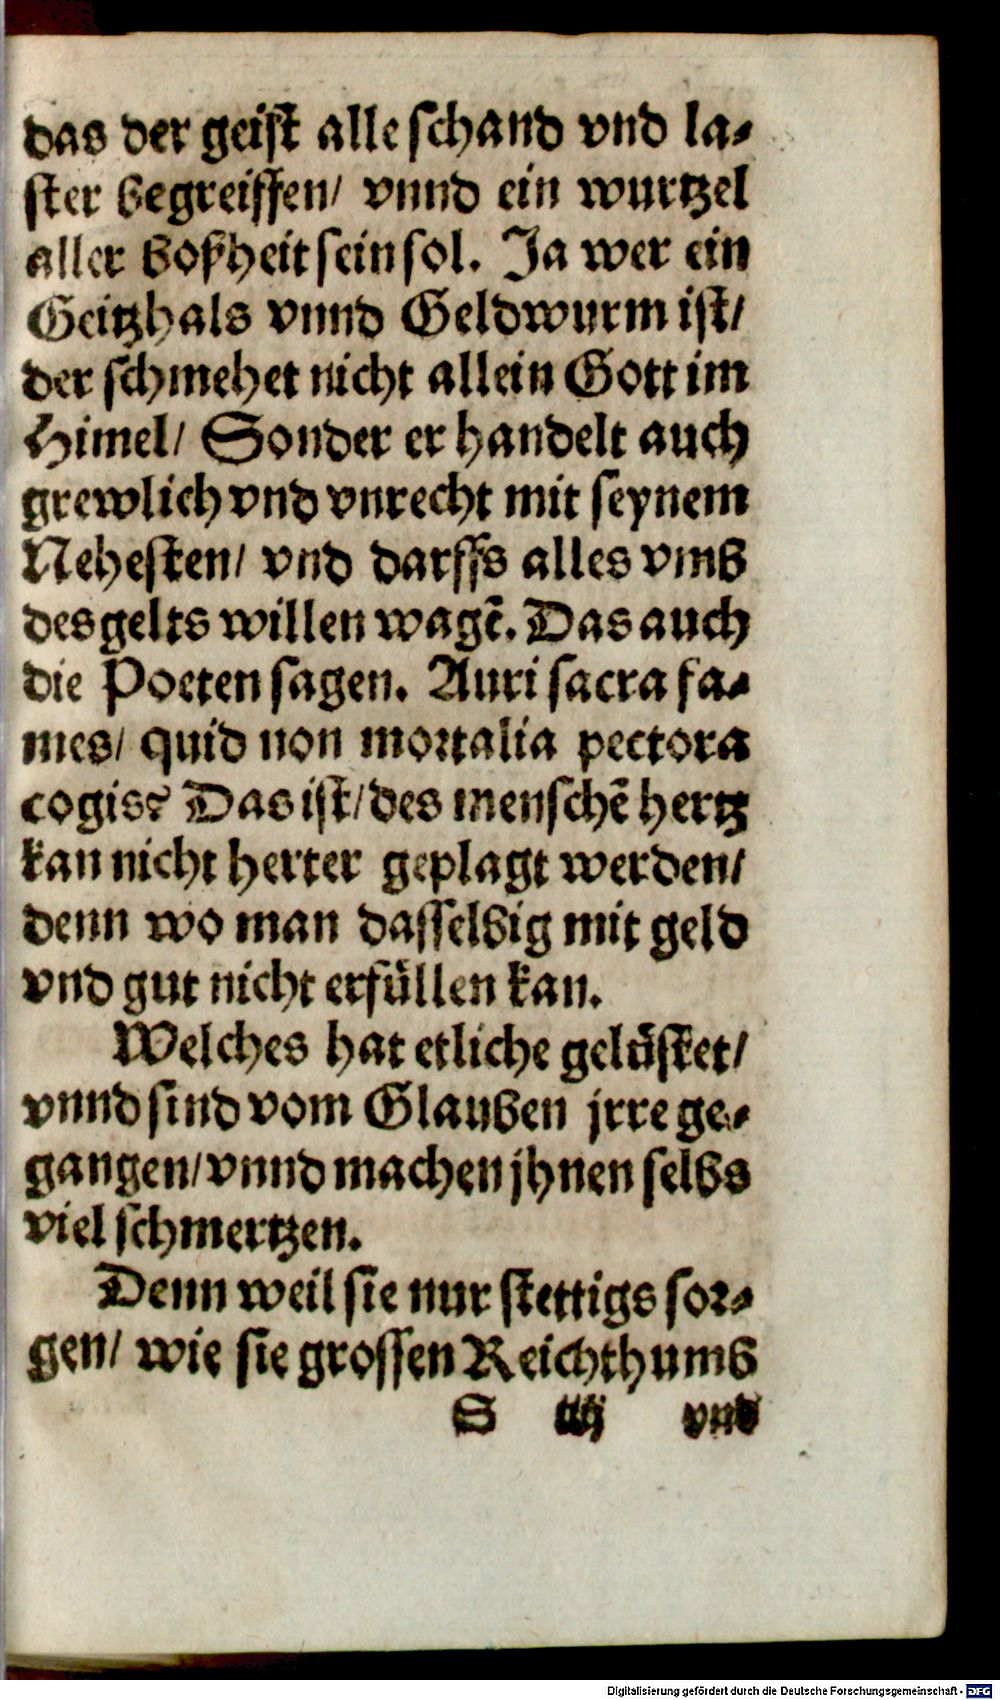 das der geist alle schand vnd la-
ster begreiffen/ vnnd ein wurtzel
aller boßheit sein sol. Ja wer ein
Geitzhals vnnd Geldwurm ist/
der schmehet nicht allein Gott im
Himel/ Sonder er handelt auch
grewlich vnd vnrecht mit seynem
Nehesten/ vnd darffs alles vmb
des gelts willen wagē. Das auch
die Poeten sagen. Auri sacra fa-
mes/ quid non mortalia pectora
cogis? Das ist/ des menschē hertz
kan nicht herter geplagt werden/
denn wo man dasselbig mit geld
vnd gut nicht erfüllen kan.
Welches hat etliche gelüstet/
vnnd sind vom Glauben jrre ge-
gangen/ vnnd machen jhnen selbs
viel schmertzen.
Denn weil sie nur stettigs sor-
gen/ wie sie grossen Reichthumb
S iiij vnd
Digitalisierung gefördert durch die Deutsche Forschungsgemeinschaft - DFG